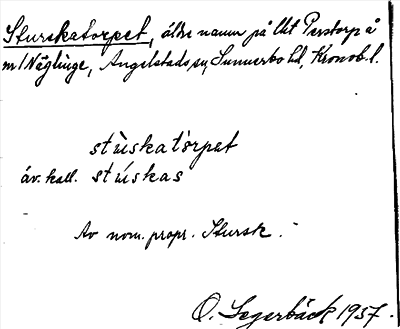 Sturskatorpet, äldre namn på Utt Perstorp å
nr 1 Näglinge, Angelstads sn, Sunnerbo hd, Kronob. l.
stùskatòrpet
äv. kall. stùskas
Av nom. propr. Stursk.
O. Segerbäck 1937.